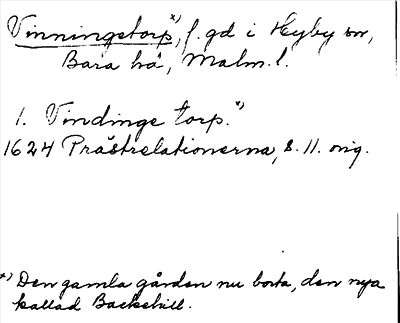 Vinningetorp*), f. gd i Hyby sn,
Bara hd, Malm. l.
1. Vindinge torp.*)
1624 Prästrelationerna, s. 11. orig.
*) Den gamla gården nu borta, den nya
kallad Backehill.